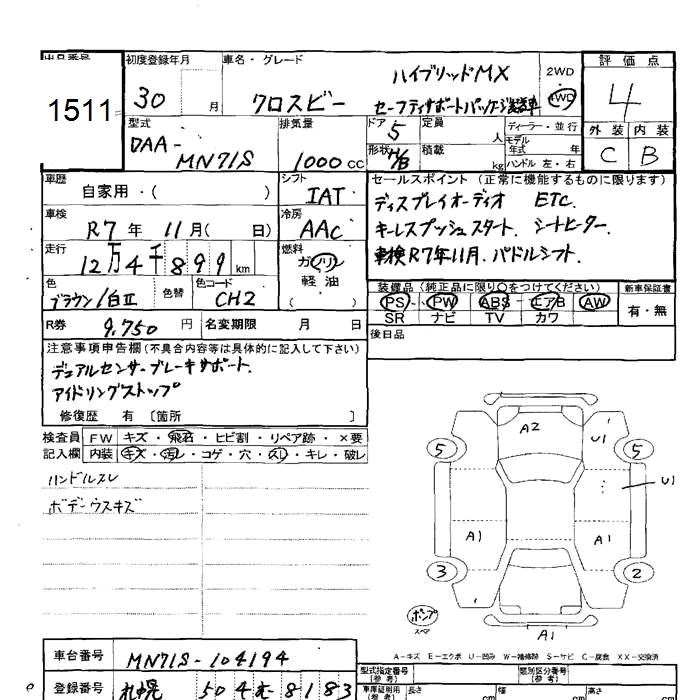 出品番号 初度登録年月 車名・グレード 評価点
1511 30 月 クロスビー ハイブリッドMX 2WD 4WD 4
セーフティサポートパッケージ装着車
型式 排気量 ドア 定員 ディーラー・並行 外装 内装
DAA- 5 人 モデル年式 年 C B
MN71S 1000 cc 形状 H/B 積載 kg ハンドル 左・右
車歴 シフト セールスポイント (正常に機能するものに限ります)
自家用・( ) IAT ディスプレイオーディオ ETC.
車検 冷房 キーレスプッシュスタート. シートヒーター.
R7年 11月( 日) AAC 車検R7年11月. パドルシフト.
走行 燃料
12万4千899km ガソリン
軽油
色 色替 色コード 装備品 (純正品に限り○をつけてください) 新車保証書
ブラウン/白Ⅱ CH2 PS・PW・ABS・エアB・AW 有・無
SR ナビ TV カワ
R券 9,750円 名変期限 月 日 後日品
注意事項申告欄(不具合内容等は具体的に記入して下さい)
デュアルセンサーブレーキサポート.
アイドリングストップ
修復歴 有 〔箇所 〕
検査員 FW キズ・飛石・ヒビ割・リペア跡・×要
記入欄 内装 キズ・汚レ・コゲ・穴・スレ・キレ・破レ
ハンドルスレ
ボデーウスキズ
A2
5 U1 5
U1
A1 A1
3 2
ポンプ
スペア
A1
A-キズ E-エクボ U-凹み W-補修跡 S-サビ C-腐食 XX-交換済
車台番号 MN71S-104194
型式指定番号(参考) 類別区分番号(参考)
登録番号 札幌 504 8183
車庫証明用(参考) 長さ cm 幅 cm 高さ cm